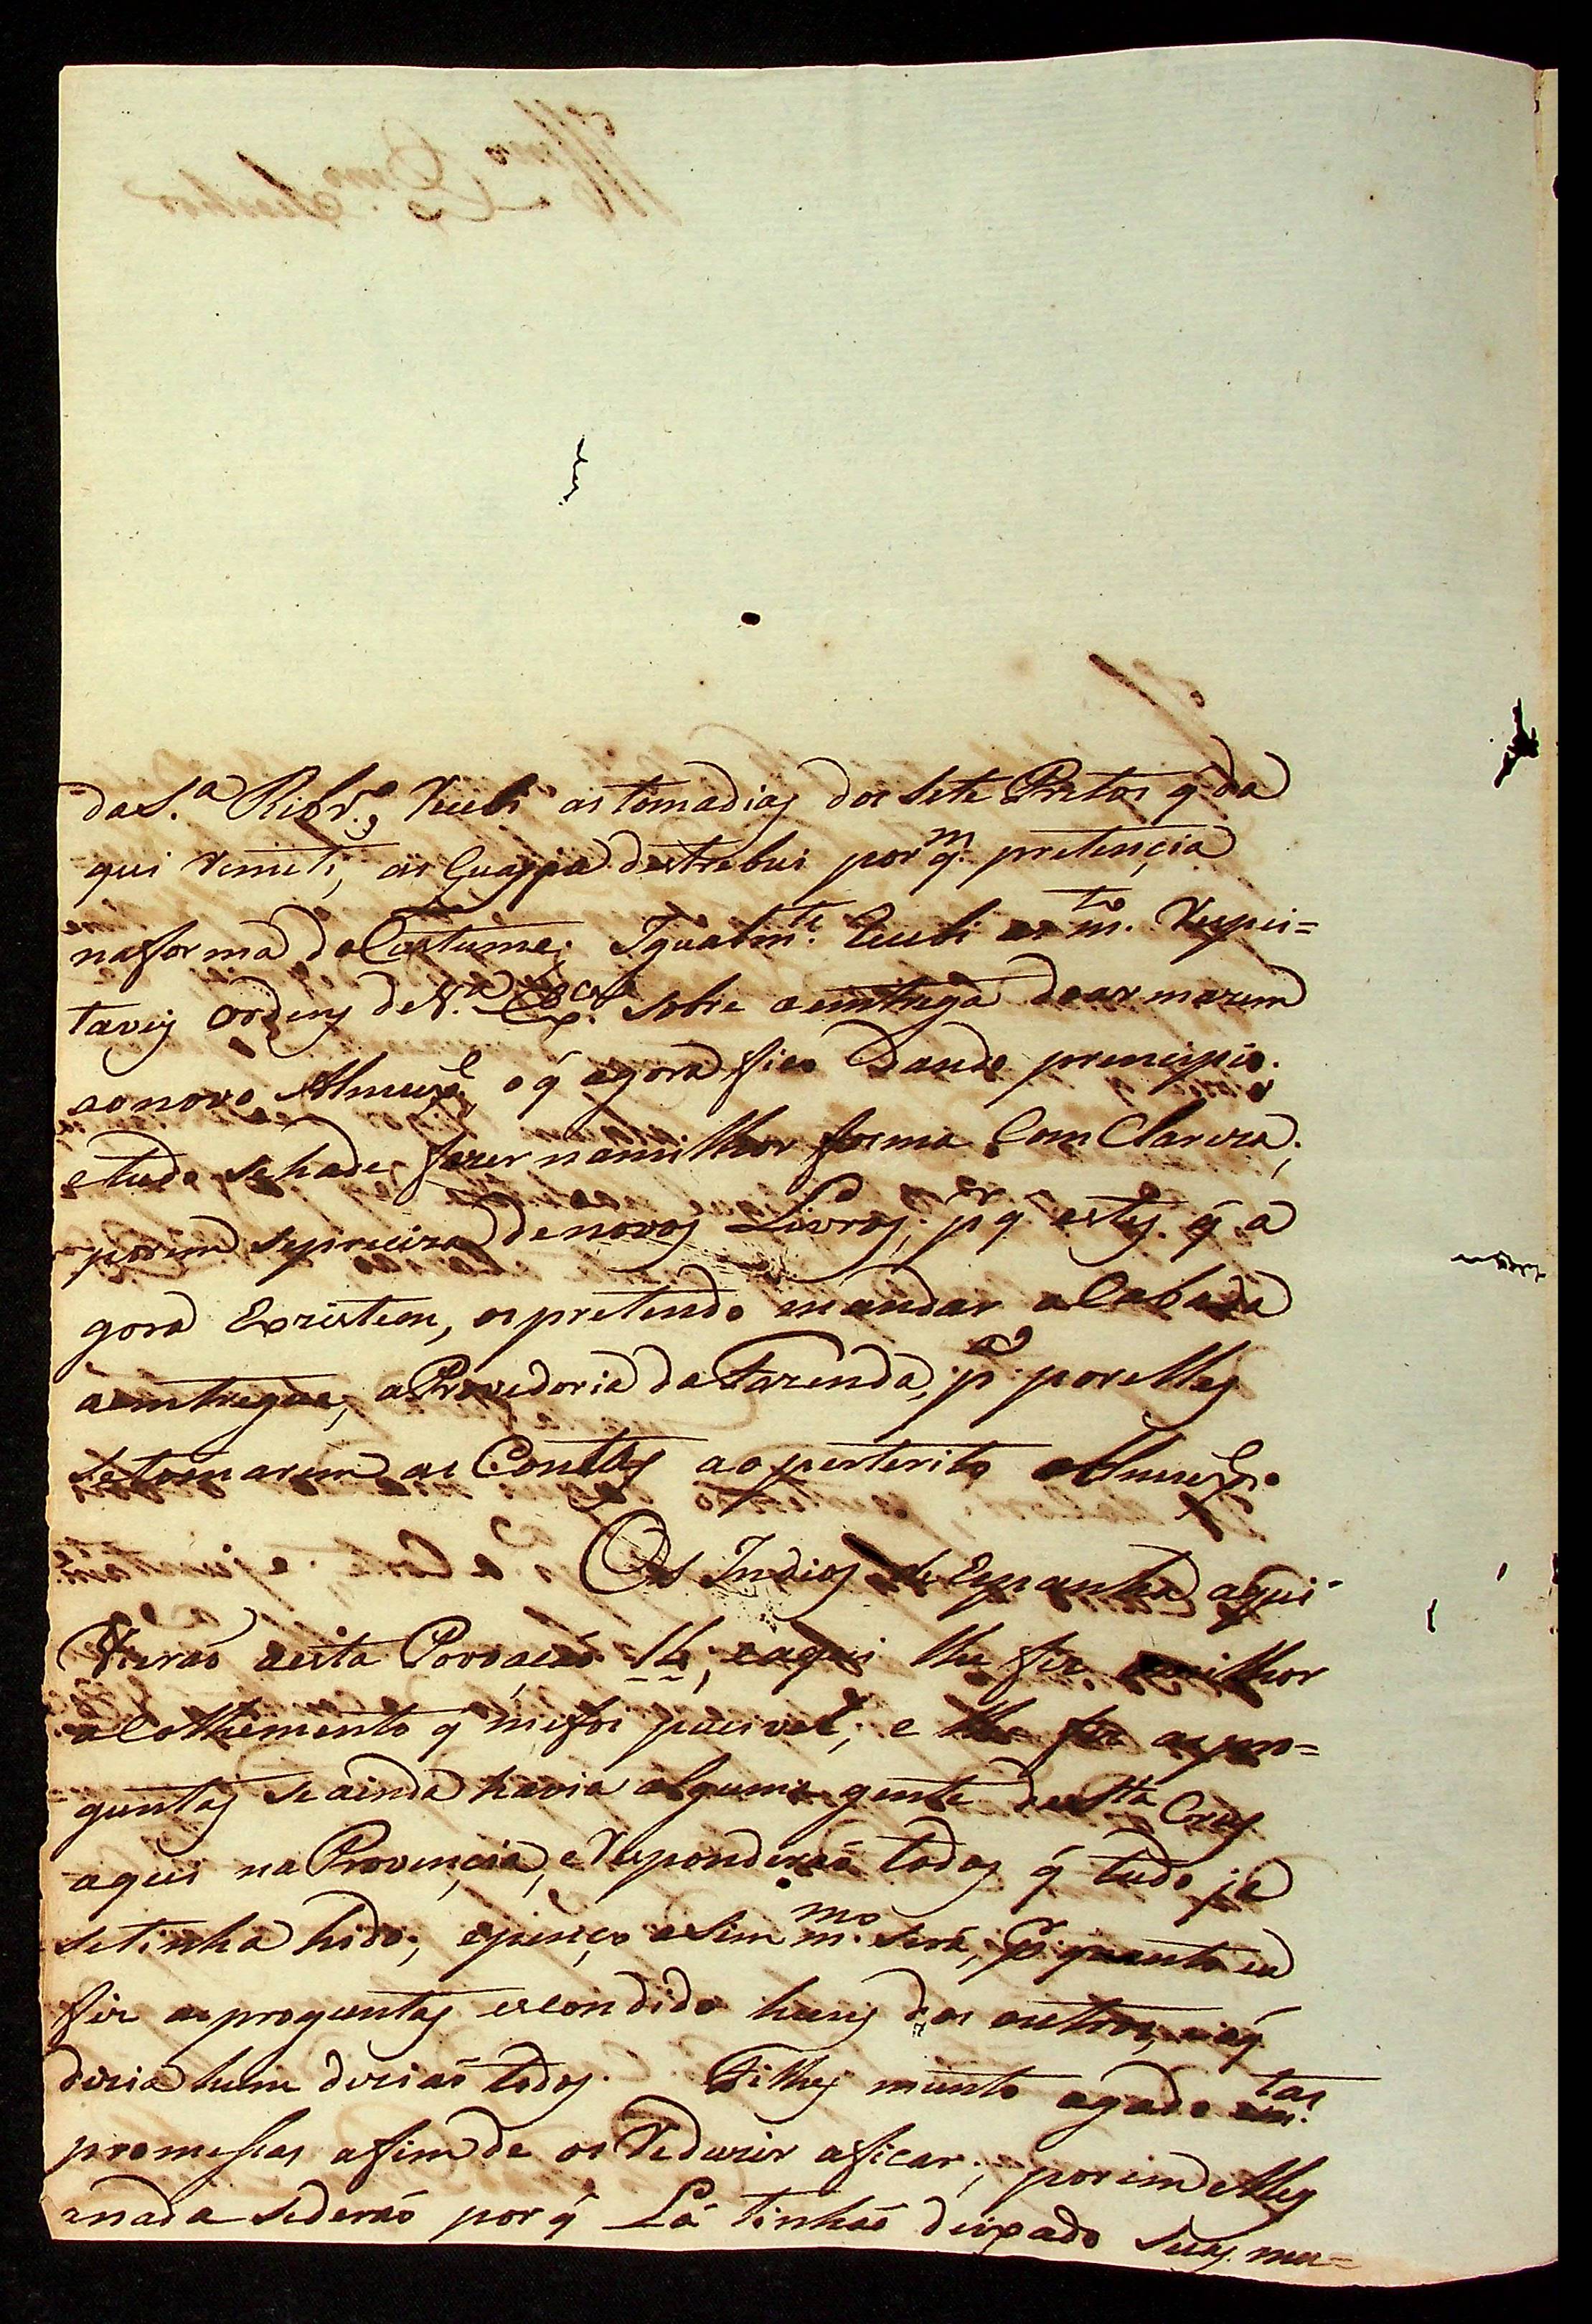 da S.ª Ribr.ª, Recebi as tomadias dos sete Pretos q̃ da
qui Remeti, as quais destrebui por q.m pretencia
na forma do Costume; Igualm.te Recebi as m.to Respei=
taveis Ordens de V.ª Ex.ca sobre a emtrega do armazem
ao novo Almux.e, o q̃ agora fico dando prencipio.
e tudo se hade fazer na milhor forma Com Clareza;
porem se preciza de novos Livros; p.r q̃ estes q̃ a
gora Existem, os pretendo mandar aCabada
a emtregua, a Provedoria da Fazenda, p.ª por elles
se tomarem as Contas ao preterito Almux.e.
Os Indios de Espanha aqui
Vieraó a esta Povoaçaó 14, e aqui lhe fiz o milhor
aColhemento q̃ me foi pucivel; e lhe fiz as pre=
guntas se ainda havia alguma gente de S.ta Crus
aqui na Provencia, e Responderaó todos q̃ tudo já
se tinha hido; e penço asim m.mo será, p.r quanto eu
fiz as proguntas escondido huns dos outros, e o q̃
dizia hum diziaó todos. Fiz lhes munto agado m.tas
promeças afim de os Reduzir aficar; porem elles
anada sederaó por q̃ Lá tinhaó deixado suas mu=